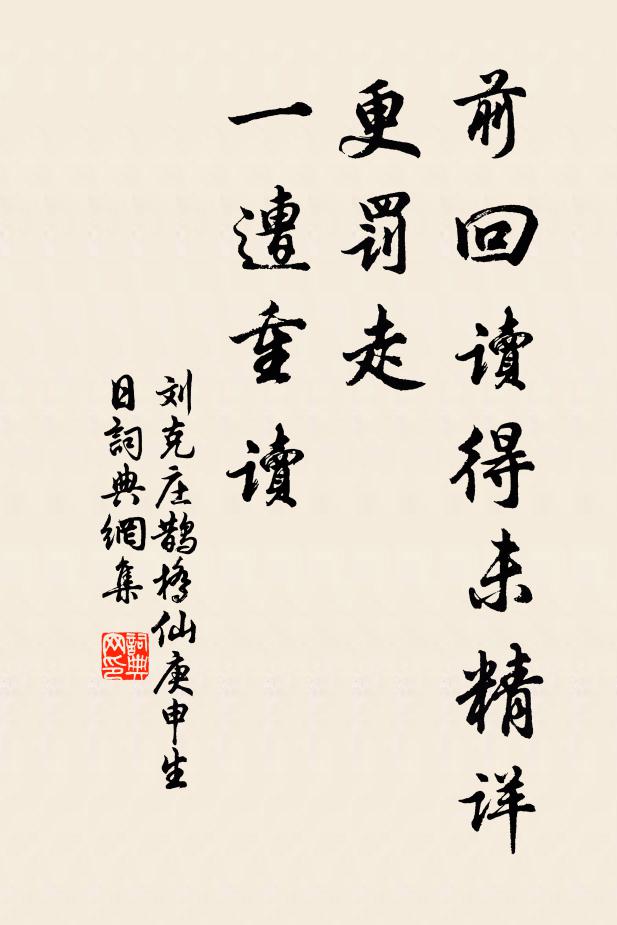 前回读得未精详
更罚走
一遭重读
刘克庄鹊桥仙庚申生
日詞典網集
詞典
网印